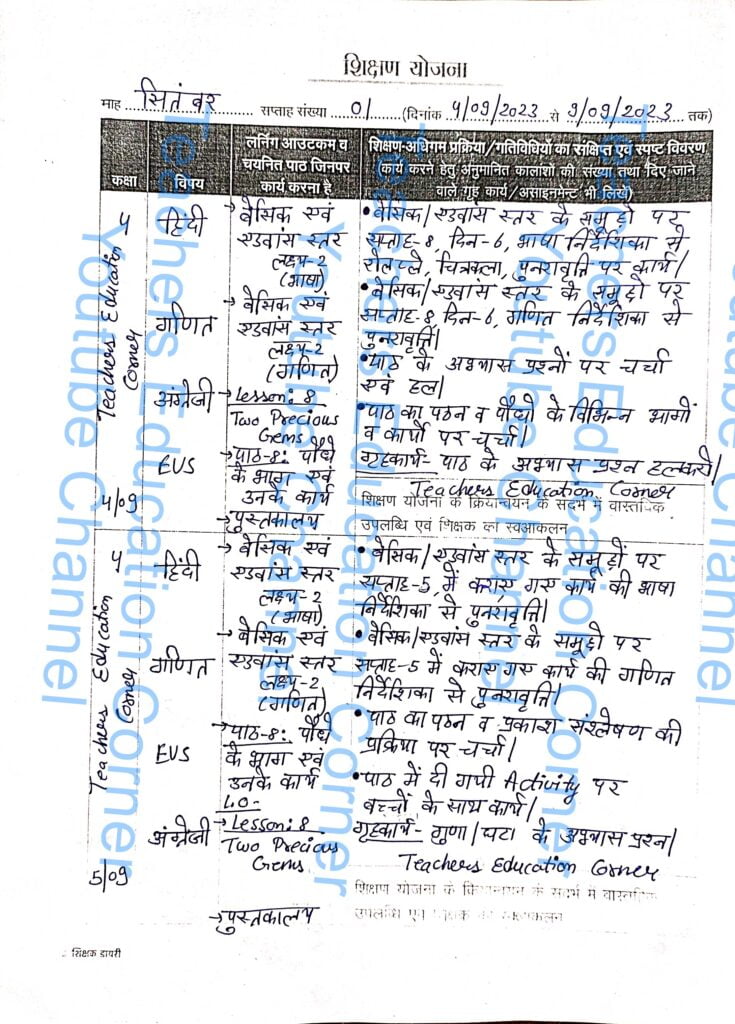 शिक्षण योजना
माह सितंबर सप्ताह संख्या 01 (दिनांक 4/09/2023 से 9/09/2023 तक)
कक्षा
विषय
लर्निंग आउटकम व
चयनित पाठ जिनपर
कार्य करना है
शिक्षण-अधिगम प्रक्रिया/गतिविधियों का संक्षिप्त एवं स्पष्ट विवरण
(कार्य करने हेतु अनुमानित कालांशों की संख्या तथा दिए जाने
वाले गृह कार्य/असाइनमेन्ट भी लिखें)
Teachers Education
Corner
4/09
५
हिंदी
→ बेसिक एवं
एडवांस स्तर
लक्ष्य-2
(भाषा)
• बेसिक/एडवांस स्तर के समूहों पर
सप्ताह-8, दिन-6, भाषा निर्देशिका से
रोलप्ले, चित्रकला, पुनरावृत्ति पर कार्य।
गणित
→ बेसिक एवं
एडवांस स्तर
लक्ष्य-2
(गणित)
• बेसिक/एडवांस स्तर के समूहों पर
सप्ताह-8, दिन-6, गणित निर्देशिका से
पुनरावृत्ति।
अंग्रेजी
→ Lesson: 8
Two Precious
Gems
• पाठ के अभ्यास प्रश्नों पर चर्चा
एवं हल।
EVS
→ पाठ-8: पौधे
के भाग एवं
उनके कार्य
• पाठ का पठन व पौधों के विभिन्न भागों
व कार्यों पर चर्चा।
गृहकार्य- पाठ के अभ्यास प्रश्न हल करो।
→ पुस्तकालय
Teachers Education Corner
शिक्षण योजना के क्रियान्वयन के संदर्भ में वास्तविक
उपलब्धि एवं शिक्षक का स्वआकलन
Teachers Education
Corner
5/09
५
हिंदी
→ बेसिक एवं
एडवांस स्तर
लक्ष्य-2
(भाषा)
• बेसिक/एडवांस स्तर के समूहों पर
सप्ताह-5, में कराए गए कार्य की भाषा
निर्देशिका से पुनरावृत्ति।
गणित
→ बेसिक एवं
एडवांस स्तर
लक्ष्य-2
(गणित)
• बेसिक/एडवांस स्तर के समूहो पर
सप्ताह-5 में कराए गए कार्य की गणित
निर्देशिका से पुनरावृत्ति।
EVS
→ पाठ-8: पौधे
के भाग एवं
उनके कार्य
• पाठ का पठन व प्रकाश संश्लेषण की
प्रक्रिया पर चर्चा।
अंग्रेजी
L.O-
→ Lesson: 8
Two Precious
Gems
• पाठ में दी गयी Activity पर
बच्चों के साथ कार्य।
गृहकार्य- गुणा/घटा के अभ्यास प्रश्न।
Teachers Education Corner
→ पुस्तकालय
शिक्षण योजना के क्रियान्वयन के संदर्भ में वास्तविक
उपलब्धि एवं शिक्षक का स्वआकलन
शिक्षक डायरी
Teachers Education Corner
Youtube Channel
Teachers Education Corner
Youtube Channel
Teachers Education Corner
Youtube Channel